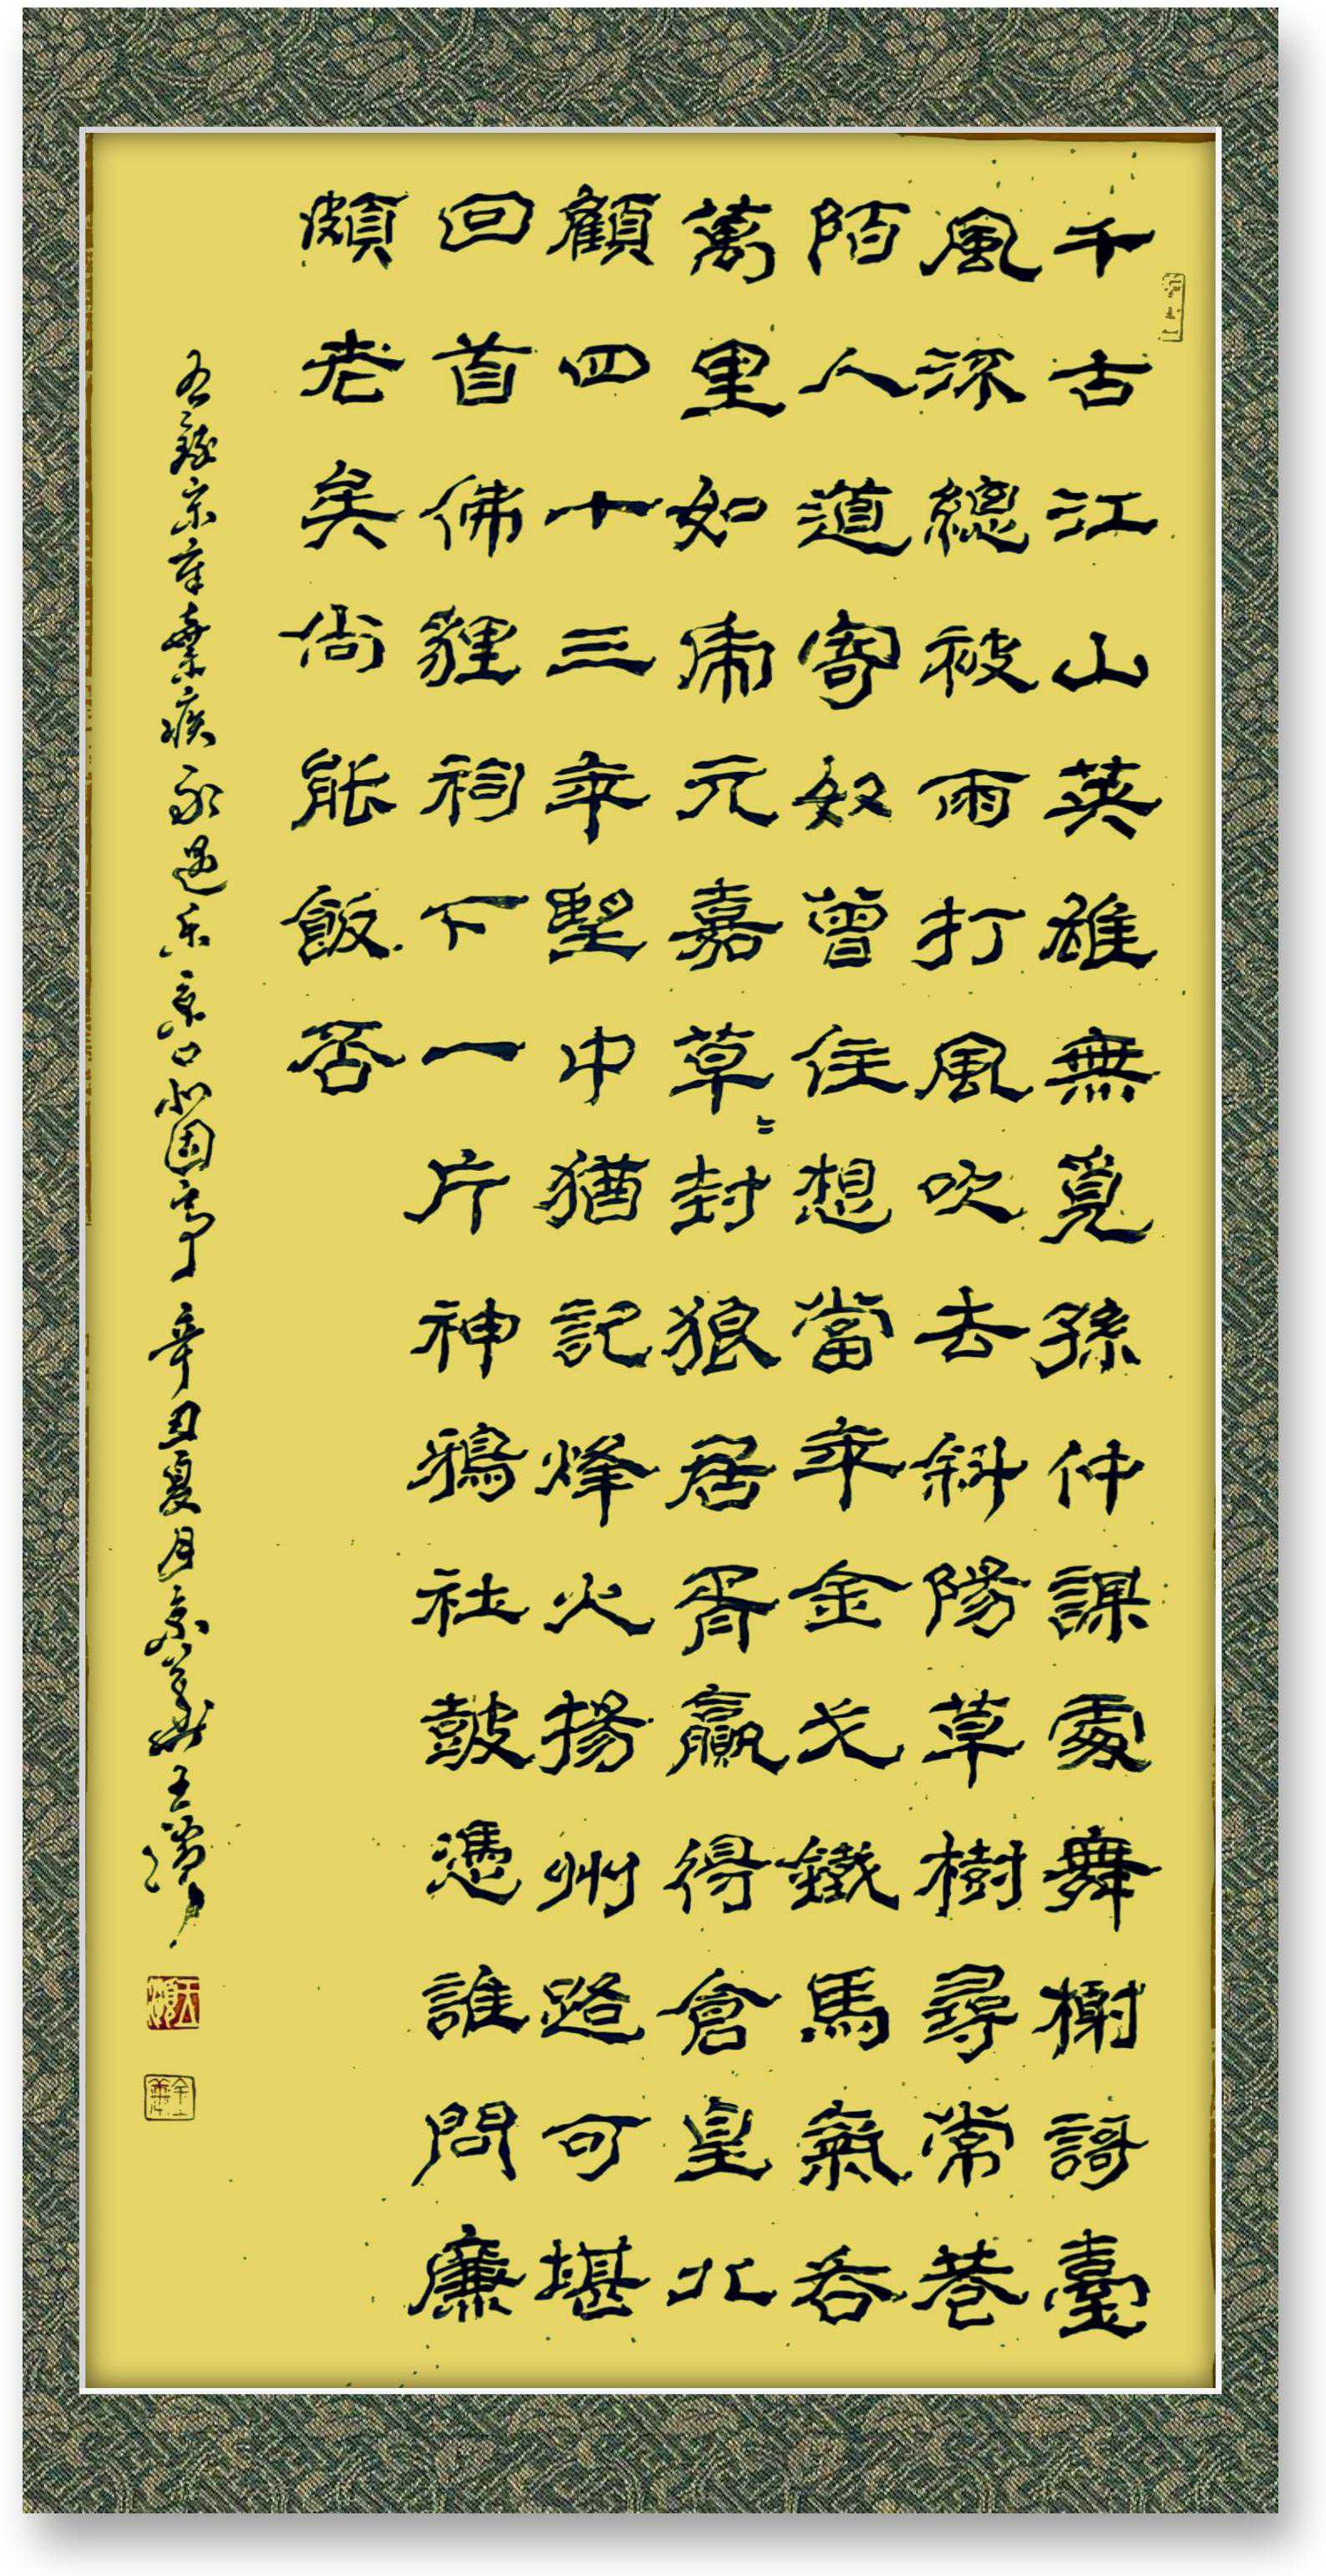 千古江山英雄無覓孫仲謀處舞榭謌臺
風流總被雨打風吹去斜陽草樹尋常巷
陌人道寄奴曾住想當年金戈鐵馬氣吞
萬里如虎元嘉草〻封狼居胥贏得倉皇北
顧四十三年望中猶記烽火揚州路可堪
回首佛貍祠下一片神鴉社鼓憑誰問廉
頗老矣尚能飯否
右錄宋辛棄疾永遇乐京口北固亭 辛丑夏月京華王